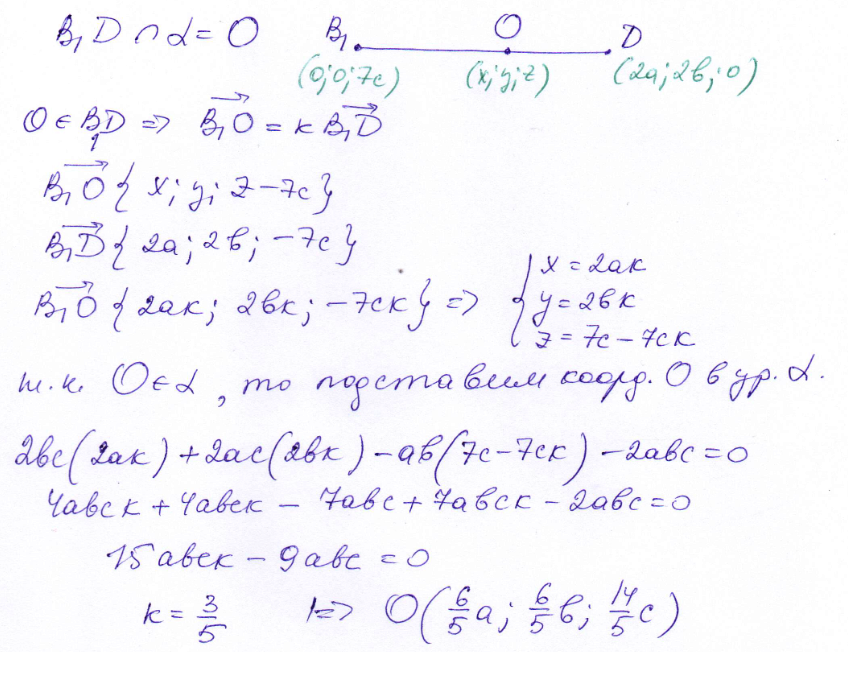 B₁D ∩ α = O   B₁   O   D
(0;0;7c)   (x;y;z)   (2a;2b;0)
O ∈ B₁D => B₁O = k B₁D
B₁O { x; y; z −7c }
B₁D { 2a; 2b; −7c }
B₁O { 2ak; 2bk; −7ck } => { x = 2ak
y = 2bk
z = 7c − 7ck
т.к. O ∈ α, то подставим коорд. O в ур. α.
2bc(2ak) + 2ac(2bk) − ab(7c − 7ck) − 2abc = 0
4abck + 4abck − 7abc + 7abck − 2abc = 0
15abck − 9abc = 0
k = 3/5   => O(6/5 a; 6/5 b; 14/5 c)